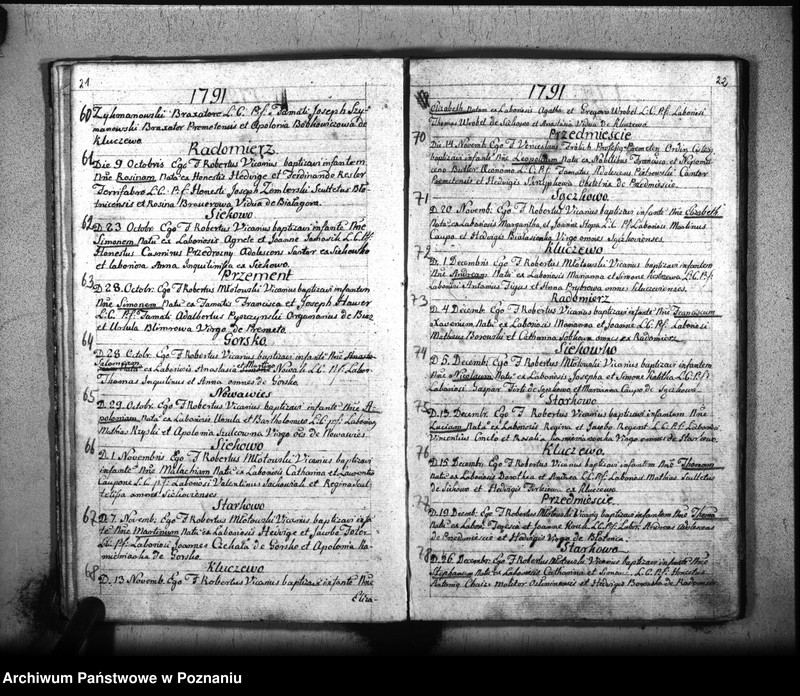 21
1791
60 Zykmanowski Braxatore L.C. P.f. Famati Joseph Szy=
manowski Braxator Premetensis et Apolonia Bochkiewiczowa de
Kluczewo
Radomierz
61 Die 9 Octobris Ego F Robertus Vicarius baptizavi infantem
Nne Rosinam nata ex Honestis Hedvige et Ferdinando Resler
Ferrifabro L.C. P.f. Honesti Joseph Zomborski Scultetus Blo
tnicensis et Rosina Breuerowa Vidua de Białagora
Siekowo
62 D. 23 Octobr. Ego F Robertus Vicarius baptizavi infante Nne
Simonem Nata ex Laboriosis Agnete et Joanne L.C. P.f.
Honestus Casimirus Przedrozny Adolescens Sartor ex Siekowko
et laboriosa Anna Inquilinissa ex Siekowo
Przement
63 D. 28. Octobr. Ego F Robertus Mlotowski Vicarius baptizavi infantem
Nne Simonem Nata ex Famatis Francisca et Joseph Hauser
L.C. P.f. Famati Adalbertus Pyszzynski Organarius de
et Ursula Blimrowa Virgo de Premeto
Gorsko
64 D. 28. Octobr. Ego F Robertus Vicarius baptizavi infante Nne
Salomeam ex Laboriosis Anastasia et Martino Nowak L.C. P.f. Labor
Thomas Inquilinus et Anna omnes de Gorsko
Nowawies
65 D. 29. Octobr. Ego F Robertus Vicarius baptizavi infante Nne A=
poloniam Nata ex Laboriosis Ursula et Bartholomeo L.C. P.f. Laboriosi
Mathias Rzyski et Apolonia Szulcowna Virgo oes de Nowawies
Siekowo
66 D. 1 Novembris Ego F Robertus Mlotowski Vicarius baptizavi
infante Nne Malachiam Nata ex Laboriosis Catharina et Laurentio
Caupone L.C. P.f. Laboriosi Valentinus et Regina Scul
tetissa omnes Siekovienses
Starkowo
67 D. 7. Novemb. Ego F Robertus Mlotowski Vicarius baptizavi infa
te Nne Martinum Nata ex Laboriosis Hedvige et Jacobo
L.C. P.f. Laboriosi Joannes Cechala de Gorsko et Apolonia Ka
mieniaicka de Gorsko
Kluczewo
68 D. 13 Novemb. Ego F Robertus Vicarius baptizavi infante Nne
Eliza
22
1791
Elizabeth natam ex Laboriosis Agatha et Gregorio Wrobel L.C. P.f. Laboriosi
Thomas Wrobel de Siekowo et Anastasia Vidua de Kluczewo
Przedmiescie
70 Die 14 Novemb. Ego F Venceslaus Professus Premeten. Ordin. Cister.
baptizavi infante Nne Leopoldum Nata ex Nobilibus Francisca et
Butler Oeconomo L.C. P.f. Famatus Aloizius Piotrowski Cantor
Premetensis et Hedvigis Obstetrix de Przedmiescie
Sączkowo
71 D. 20 Novemb. Ego F Robertus Vicarius baptizavi infante Nne Elizabeth
Nata ex Laboriosis Margaretha et Joanne L.C. P.f. Laboriosi Martinus
Caupo et Hedvigis Virgo omnes
Kluczewo
72 D. 1 Decembris Ego F Robertus Mlotowski Vicarius baptizavi infantem
Nne Andream Nata ex Laboriosis Marianna et Simone L.C. P.f.
Laboriosi Antonius et Anna omnes Kluczevienses
Radomierz
73 D. 4 Decemb. Ego F Robertus Mlotowski Vicarius baptizavi infante Nne Franciscum
Xaverium Nata ex Laboriosis Marianna et Joanne L.C. P.f. Laboriosi
Matheus Borowski et Catharina omnes ex Radomierz
Siekowko
74 D. 5. Decembr. Ego F Robertus Mlotowski Vicarius baptizavi infantem
Nne Nicolaum Nata ex Laboriosis Josepha et Simone L.C. P.f.
Laboriosi Gaspar et Marianna Caupo de
Starkowo
75 D. 13. Decembr. Ego F Robertus Vicarius baptizavi infantem Nne
Luciam Nata ex Laboriosis Regina et Jacobo L.C. P.f. Laboriosi
Vincentius et Rosalia Virgo omnes de Starkowo
Kluczewo
76 D. 15 Decembr. Ego F Robertus Vicarius baptizavi infantem Nne Thomam
nata ex Laboriosis Dorothea et Andrea L.C. P.f. Laboriosi Mathias Scultetus
de Siekowo et Hedvigis ex Kluczewo
Przedmiescie
77 D. 19 Decet. Ego F Robertus Mlotowski Vicarius baptizavi infantem Nne Thoma
Nata ex Labor. et Joanne L.C. P.f. Labor. Andreas Adolescens
de Przedmiescie et Hedvigis Virgo de Blotnica
Starkowo
78 D. 26 Decembr. Ego F Robertus Mlotowski Vicarius baptizavi infante Nne
Stephanum Nata ex Laboriosis Catharina et Simone L.C. P.f. Honestus
Antoniq molitor et Hedvigis de Radomierz
Archiwum Państwowe w Poznaniu